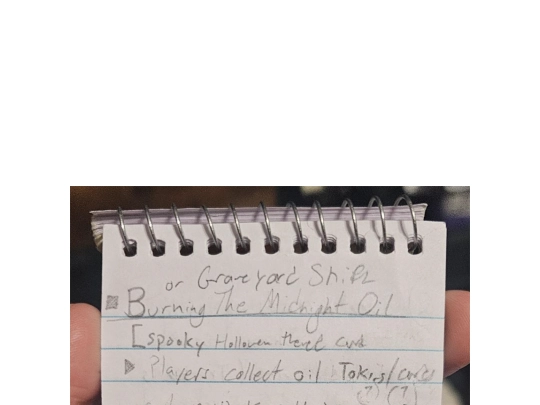 or Graveyard Shift
Burning The Midnight Oil
[spooky Holloween
Players collect oil Tokins/cards
(?) (?)